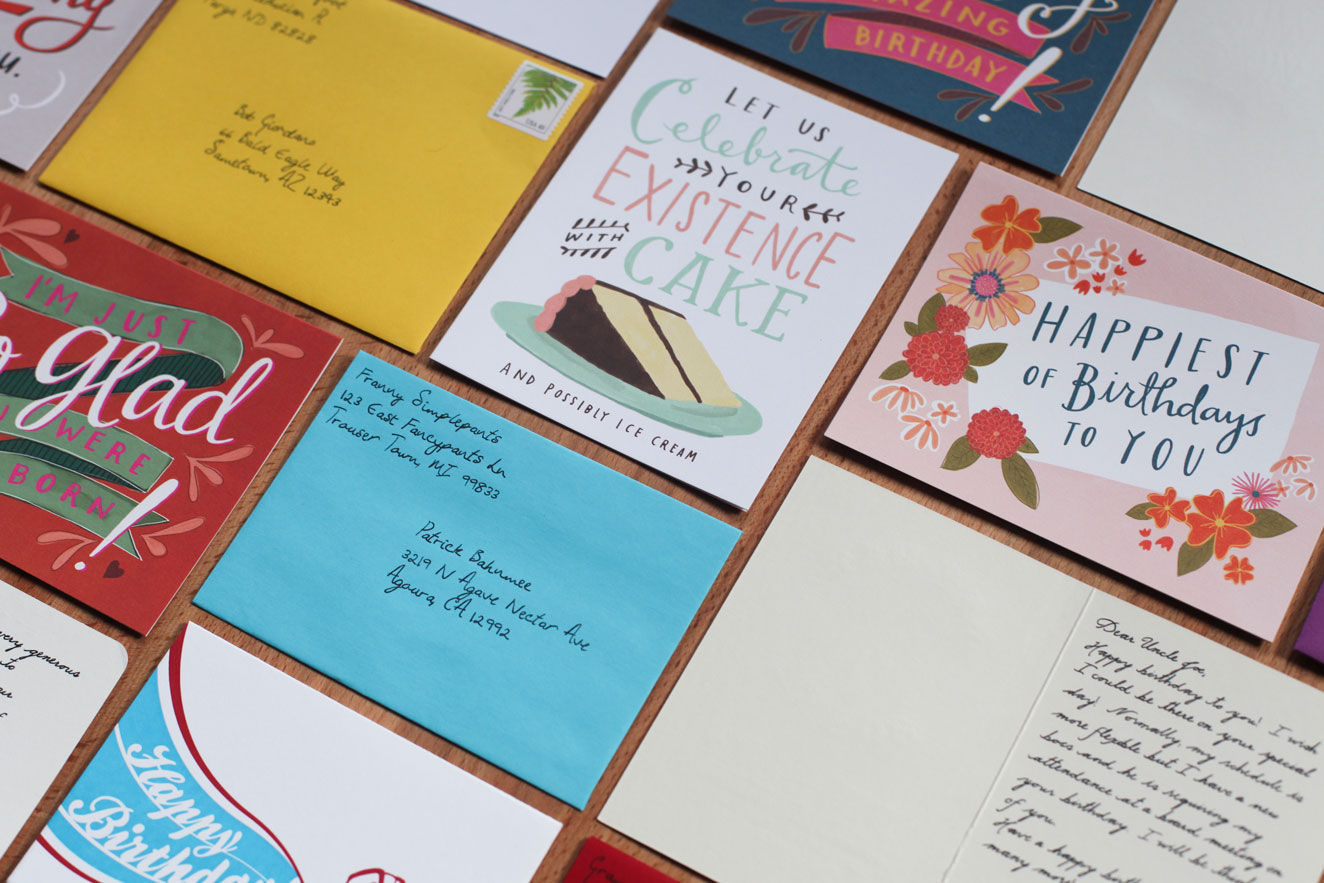 u.
Fargo ND 82828
Bob Giordano
44 Bald Eagle Way
Sametown, AZ 12393
LET US
Celebrate
YOUR
EXISTENCE
WITH
CAKE
AND POSSIBLY ICE CREAM
AMAZING
BIRTHDAY
!
HAPPIEST
OF Birthdays
TO YOU
I'M JUST
So glad
WERE
BORN
!
Franny Simplepants
123 East Fancypants Ln
Trouser Town, MI 99833
Patrick Bahumee
3219 N Agave Nectar Ave
Agawa, CA 12992
very generous
to
Happy
Birthday
Dear Uncle Joe,
Happy birthday to you! I wish
I could be there on your special
day! Normally, my schedule is
more flexible but I have a new
boss and he is requiring my
attendance at a board meeting on
your birthday. I will be
of you.
Have a happy
many more